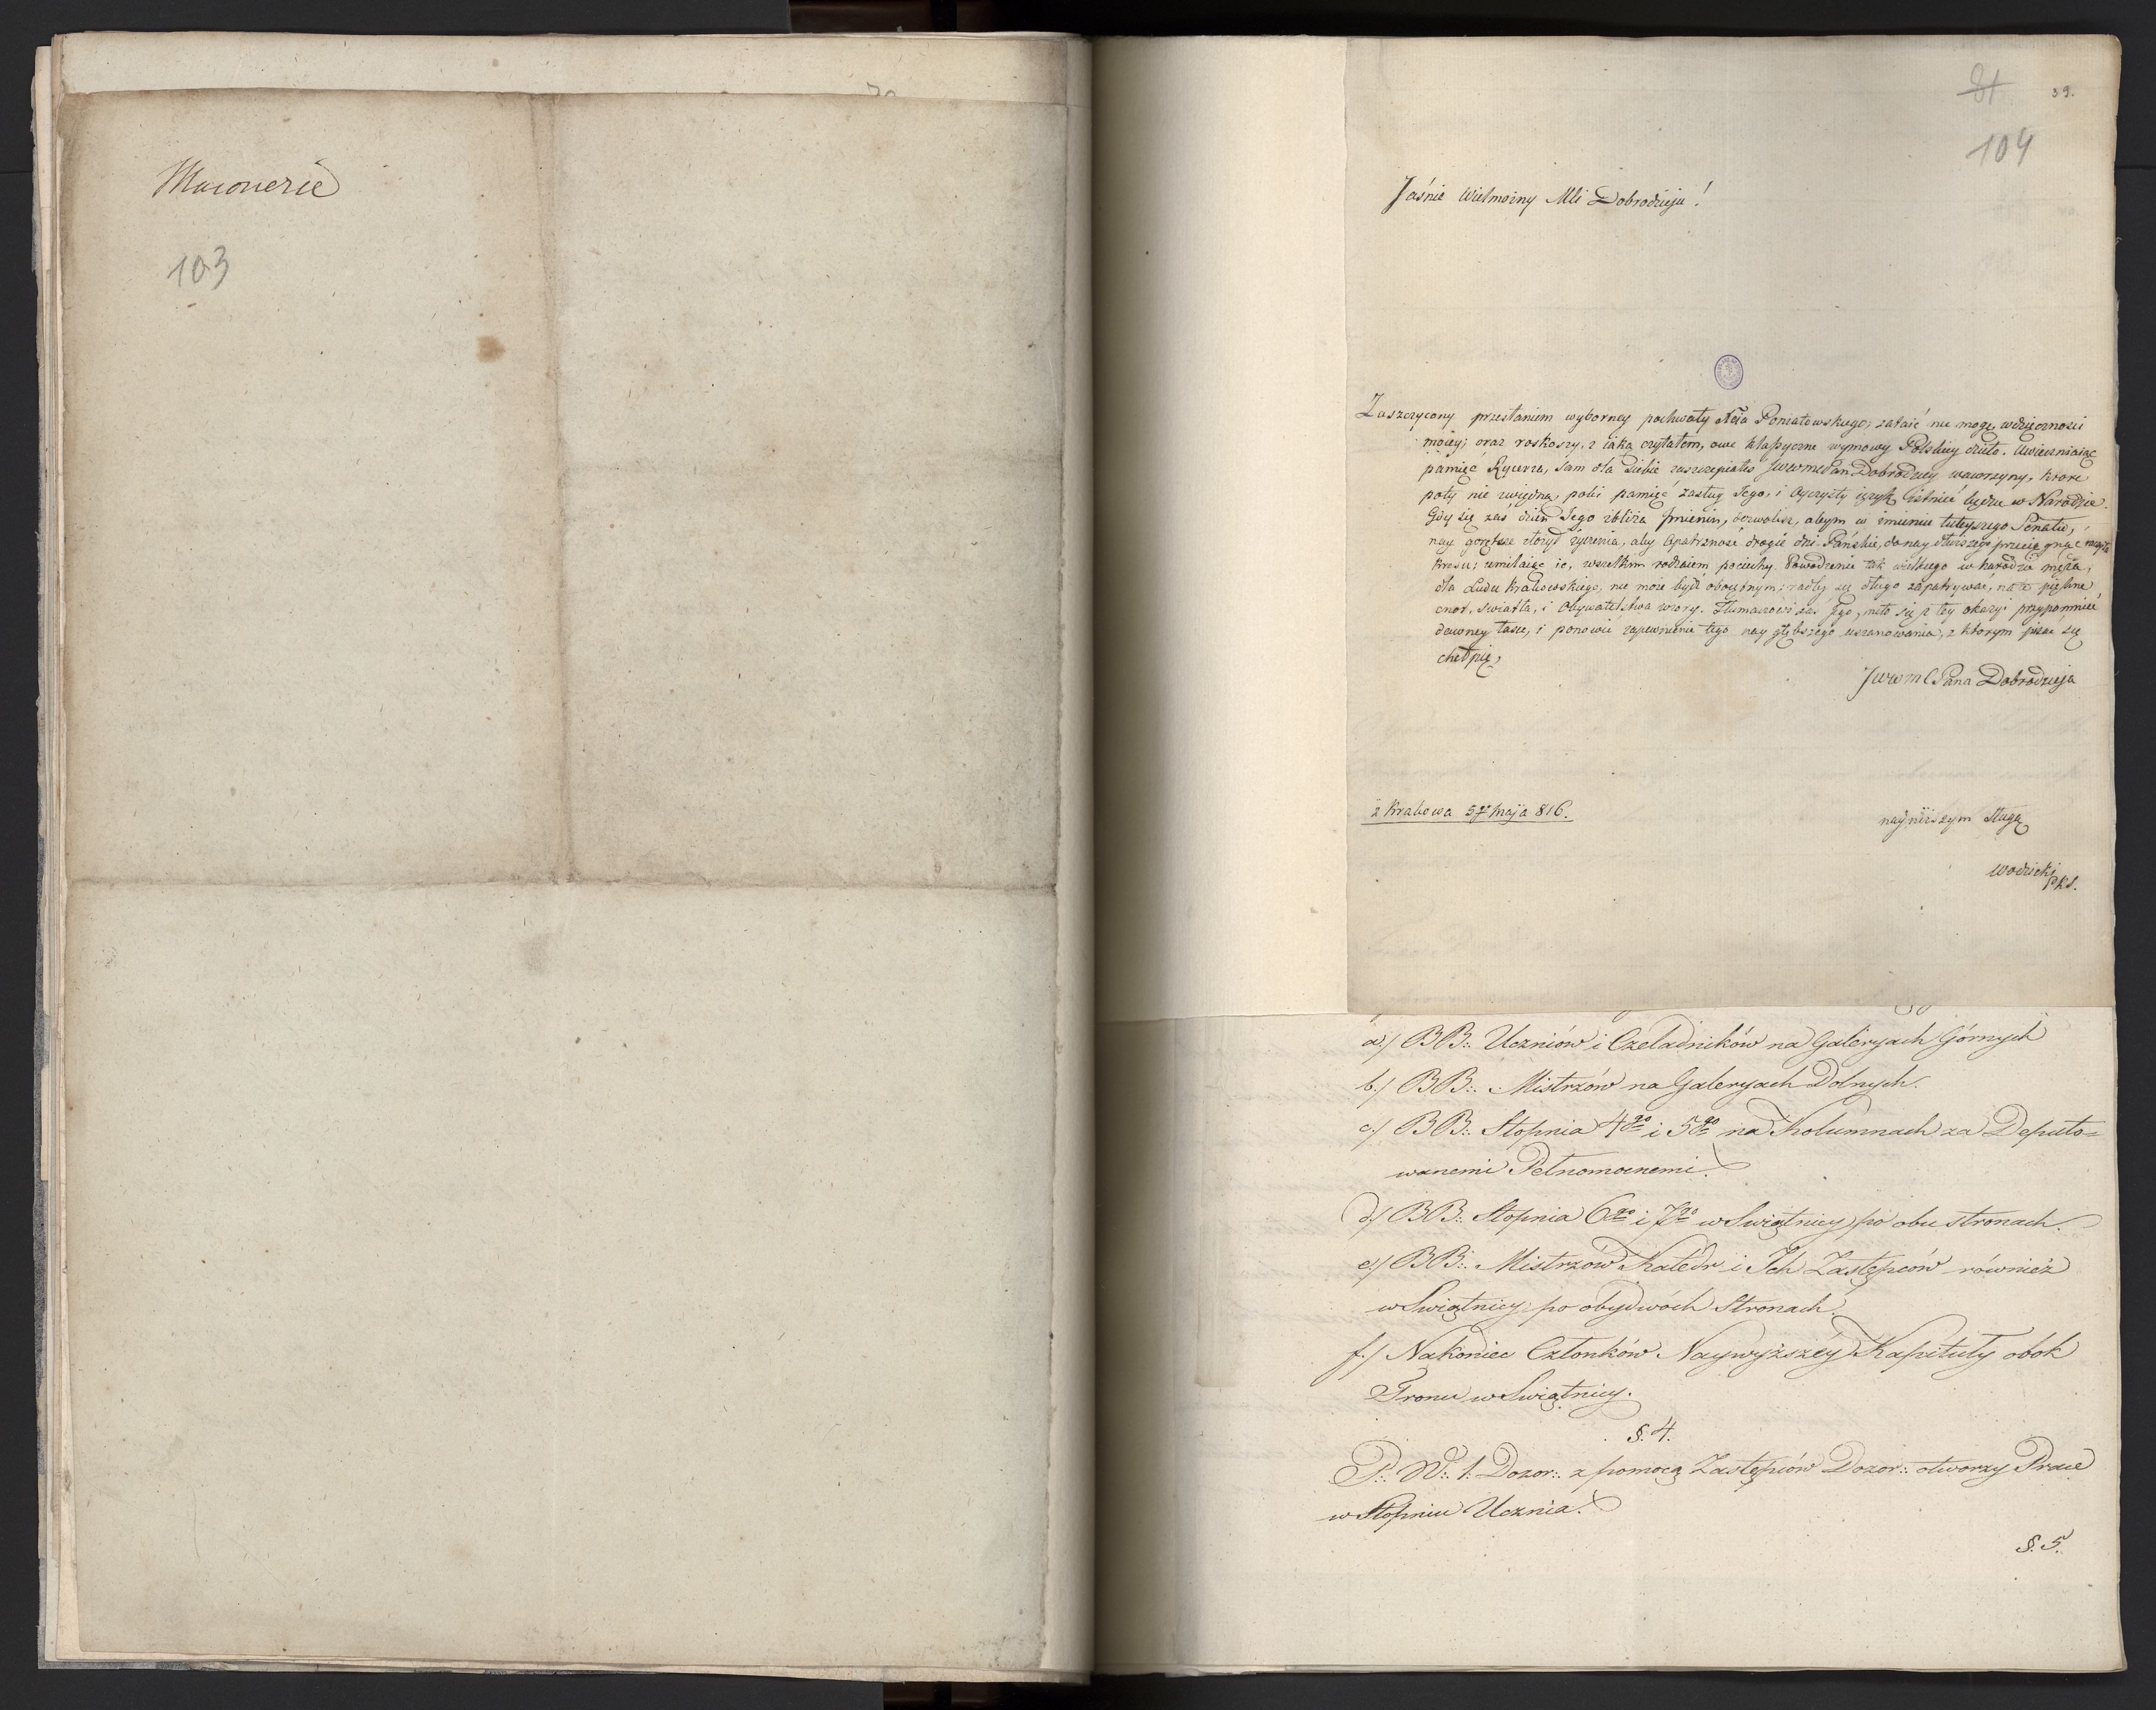 Maconerie
103
81
39.
104
Jaśnie Wielmożny Mći Dobrodzieju!
Zaszczycony przesłaniem wyborney pochwały Xcia Poniatowskiego, zataić nie mogę wdzięczności
moiey; oraz roskoszy, z iaką czytałem, owe klassyczne wymowy Polskiey dzieło. Uwieczniaiąc
pamięć Rycerza, sam dla siebie zaszczepiłeś JWWmć Pan Dobrodziey wawrzyny, które
poty nie zwiędną, poki pamięć zasług Jego, i Oyczysty ięzyk istnieć będzie w Narodzie.
Gdy się zaś dzień Jego zbliża Jmienin, dozwolisz, abym w imieniu tuteyszego Senatu,
nay gorętsze złożył życzenia, aby Opatrzność drogie dni Pańskie, do nay dłuższego przeciągnąć raczyła
kresu; umilaiąc ie, wszelkim rodzaiem pociechy. Powodzenie tak wielkiego w narodzie męża,
dla Ludu Krakowskiego, nie może bydź oboiętnym; radby się długo zapatrywać, na te piękne
cnot, światła, i Obywatelstwa wzory. Tłumaczowi zaś Jego, miło się z tey okazyi przypomnieć
dawney łasce, i ponowić zapewnienie tego nay głębszego uszanowania, z którym pisać się
chełpię,
JWWmć Pana Dobrodzieja
z Krakowa 5go Maja 816.
nayniższym sługą
Wodzicki
PRS.
a./ BB:. Uczniów i Czeladników na Galeryach Górnych
b./ BB:. Mistrzów na Galeryach Dolnych.
c./ BB:. Stopnia 4go i 5go na Kolumnach za Deputo=
wanemi Pełnomocnemi.
d./ BB:. Stopnia 6go i 7go w Swiątnicy po obu stronach.
e./ BB:. Mistrzów Katedr i Ich Zastępców również
w Swiątnicy po obydwóch Stronach.
f./ Nakoniec Członków Naywyższéy Kapituły obok
Tronu w Swiątnicy.
§. 4.
P:. W:. 1. Dozor:. z pomocą Zastępców Dozor:. otworzy Prace
w Stopniu Ucznia.
§. 5.